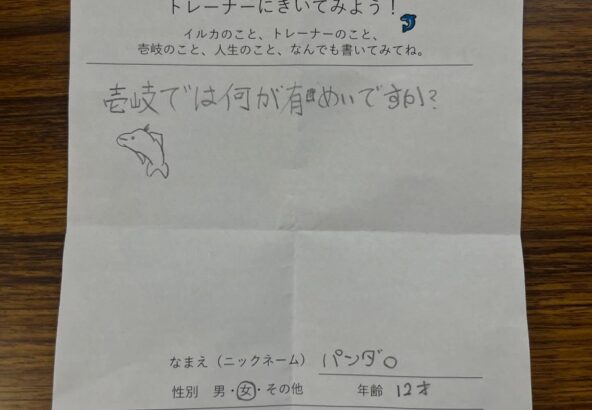 トレーナーにきいてみよう！
イルカのこと、トレーナーのこと、
壱岐のこと、人生のこと、なんでも書いてみてね。
壱岐では何が有めいですか?
なまえ（ニックネーム） パンダ〇
性別 男・女・その他 年齢 12才